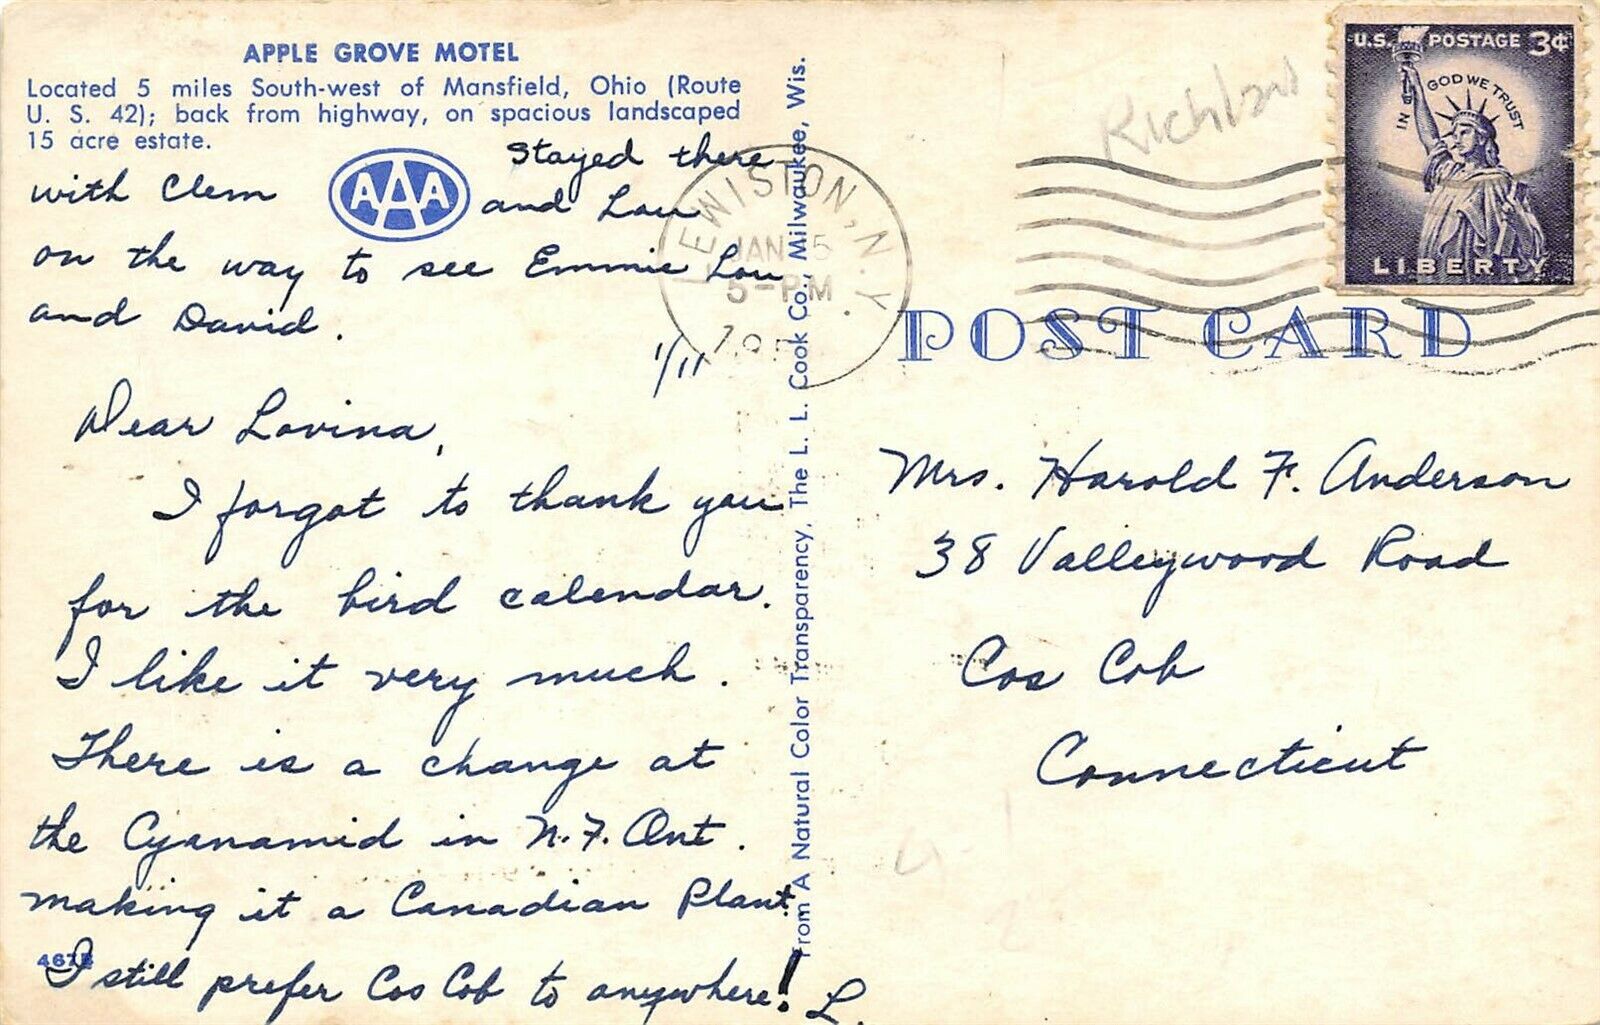 APPLE GROVE MOTEL
Located 5 miles South-west of Mansfield, Ohio (Route
U. S. 42); back from highway, on spacious landscaped
15 acre estate.
Stayed there
with Clem AAA and Lou
on the way to see Emmie Lou
and David.
1/11
Dear Lovina,
I forgot to thank you
for the bird calendar.
I like it very much.
There is a change at
the Cyanamid in N.F. Ont.
making it a Canadian Plant.
I still prefer Cos Cob to anywhere! L.
From A Natural Color Transparency, The L. L. Cook Co., Milwaukee, Wis.
LEWISTON, N.Y.
JAN
5-PM
Richland
U.S. POSTAGE 3¢
IN GOD WE TRUST
LIBERTY
POST CARD
Mrs. Harold F. Anderson
38 Valleywood Road
Cos Cob
Connecticut